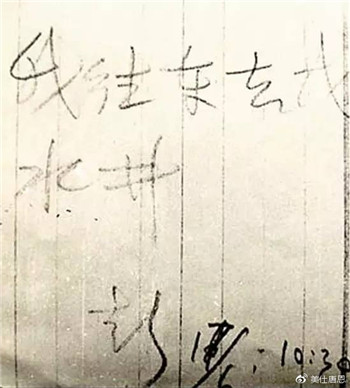 我往东去找
水井
彭 17/6:10:30
@美仕唐恩